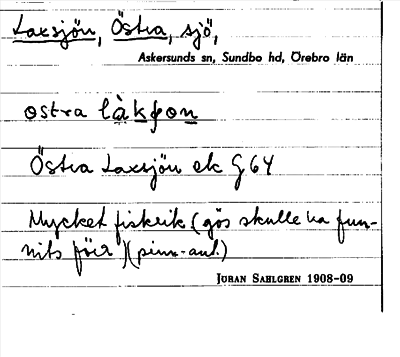 Laxsjön, Östra, sjö,
Askersunds sn, Sundbo hd, Örebro län
ostra làkʃon
Östra Laxsjön ek G 64
Mycket fiskrik (gös skulle ha fun-
nits förr)
JÖRAN SAHLGREN 1908-09